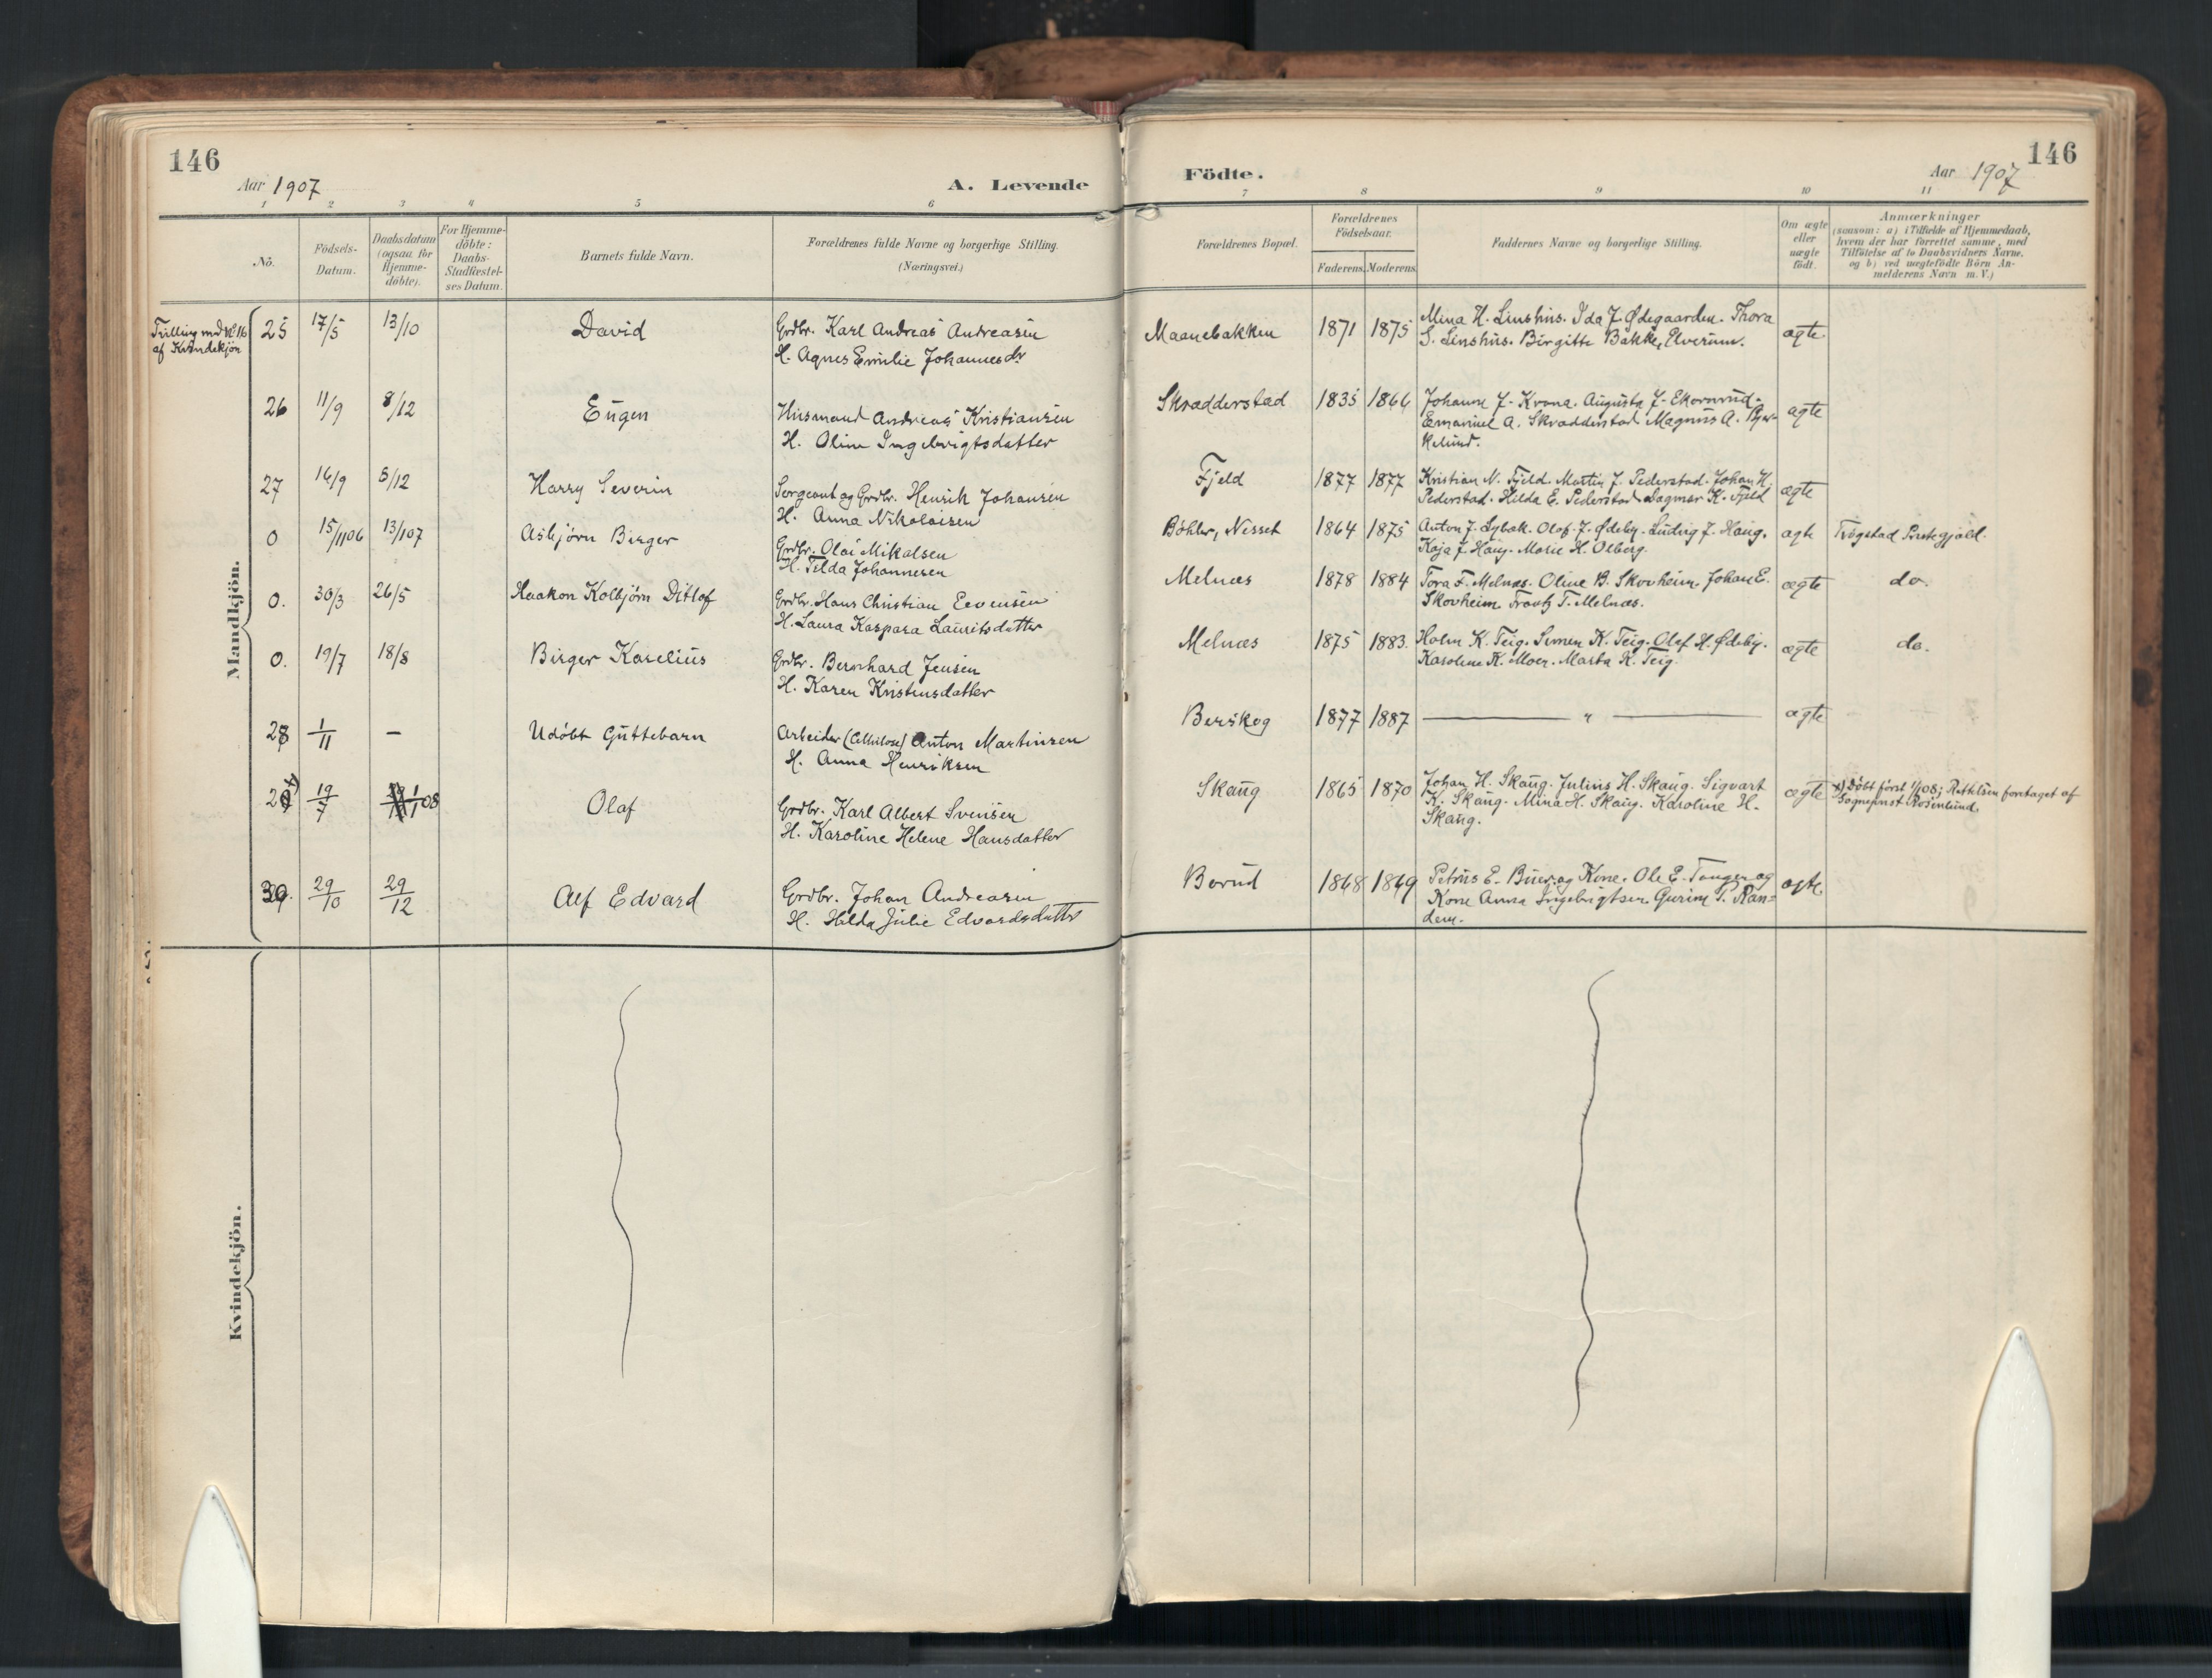 146
Aar 1907
A. Levende
Födte.
Aar 1907
146
1 2 3 4 5 6 7 8 9 10 11
No.
Födsels-
Datum.
Daabsdatum
(ogsaa for
Hjemme-
döbte).
For Hjemme-
döbte:
Daabs-
Stadfæstel-
ses Datum.
Barnets fulde Navn.
Forældrenes fulde Navne og borgerlige Stilling.
(Næringsvei.)
Forældrenes Bopæl.
Forældrenes
Födselsaar.
Faderens.
Moderens.
Faddernes Navne og borgerlige Stilling.
Om ægte
eller
uægte
födt.
Anmærkninger
(saasom: a) i Tilfælde af Hjemmedaab,
hvem der har forrettet samme, med
Tilföielse af to Daabsvidners Navne,
og b) ved uægtefödte Börn An-
melderens Navn m.V.)
Mandkjön.
Trilling med No 16
af Kvindekjön
25 17/5 13/10 David
Grdbr. Karl Andreas Andreasen
H. Agnes Emilie Johannesdr
Maanebakken 1871 1875
Mina H. Linshus. Ida J. Ødegaarden. Thora
S. Linshus. Birgitte Bakke, Elverum.
ægte.
26 11/9 8/12 Eugen
Husmand Andreas Kristiansen
H. Oline Ingebrigtsdatter
Skradderstad 1835 1866
Johanne J. Krona. Augusta J. Ekornrud.
Emanuel A. Skradderstad Magnus A. Bjer-
kelund.
ægte
27 14/9 8/12 Harry Severin
Sergeant og Grdbr. Henrik Johansen
H. Anna Nikolaisen
Fjeld 1877 1877
Kristian N. Fjeld. Martin J. Pederstad. Johan H.
Pederstad. Hilda E. Pederstad. Dagmar K. Fjeld
ægte
0 15/11 06 13/1 07 Asbjørn Birger
Grdbr. Olai Mikalsen
H. Tilda Johannesen
Böhler, Nesset 1864 1875
Anton J. Lybæk. Olof J. Ødeby. Ludvig J. Haug.
Kaja J. Haug. Marie H. Olberg.
ægte
Trøgstad Prestegjæld.
0. 30/3 26/5 Haakon Kolbjörn Ditlof
Grdbr. Hans Christian Evensen
H. Laura Kaspara Lauritsdatter
Melnæs 1878 1884
Tora F. Melnæs. Oline B. Skovheim. Johan E.
Skovheim. Frantz T. Melnæs.
ægte
do.
0. 19/7 18/8 Birger Karelius
Grdbr. Bernhard Jensen
H. Karen Kristensdatter
Melnæs 1875 1883.
Holm K. Teig. Simen K. Teig. Olaf H. Ødeby.
Karoline K. Moen. Marta K. Teig.
ægte
do.
28 1/11 — Udöbt Guttebarn
Arbeider (Cellulose) Anton Martinsen
H. Anna Henriksen
Berskog 1877 1887 — " — ægte
29 x) 19/7 1/1 08 Olaf
Grdbr. Karl Albert Svensen
H. Karoline Helene Hansdatter
Skaug 1865 1870
Johan H. Skaug. Julius H. Skaug. Sigvart
K. Skaug. Mina H. Skaug. Karoline H.
Skaug.
ægte
x) Döbt först 1/1 08; Rettelsen foretaget af
Sogneprest Rosenlund.
30. 29/10 29/12 Alf Edvard
Grdbr. Johan Andreasen
H. Hilda Julie Edvardsdatter
Borud 1868 1869
Petrus E. Buer og Kone. Ole E. Tangen og
Kone Anna Ingebrigtsen. Gurine T. Ran=
dem.
ægte.
Kvindekjön.